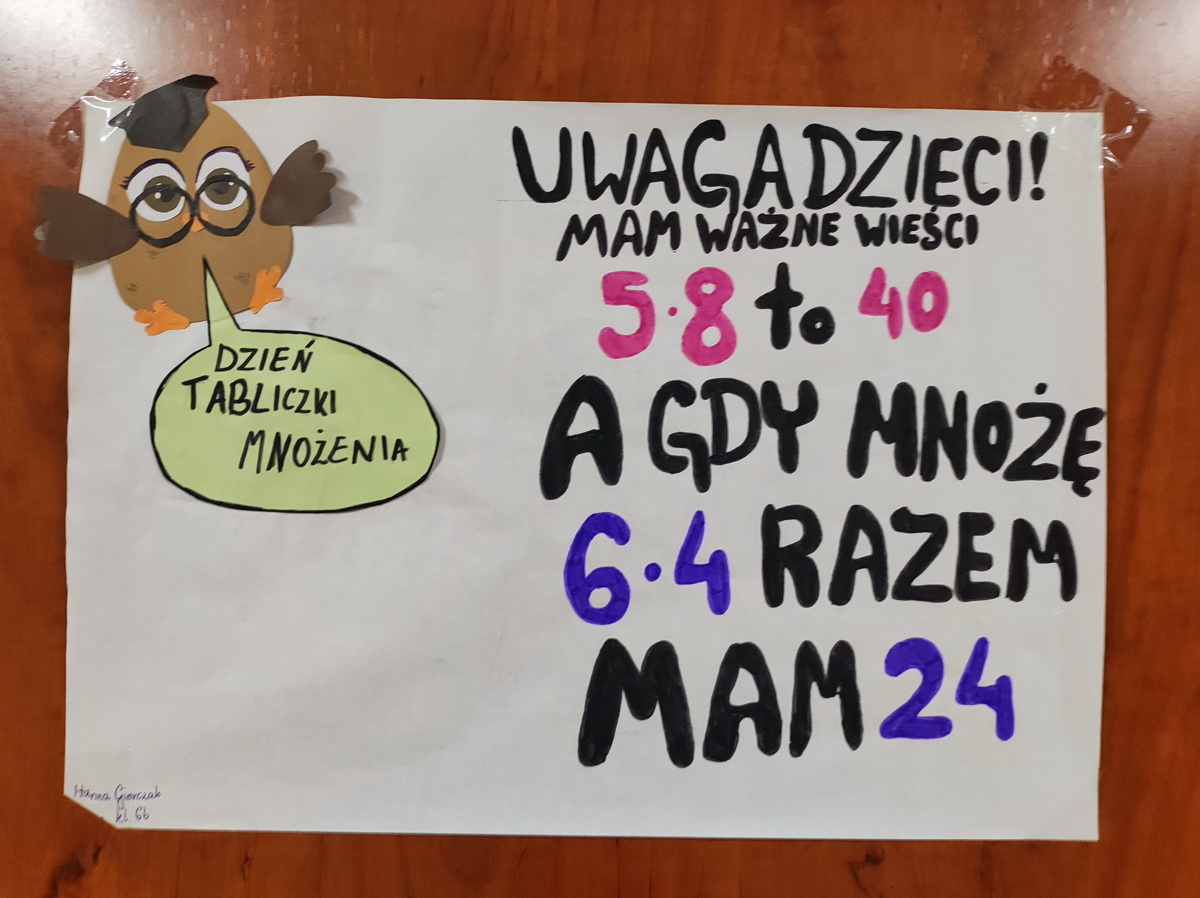 DZIEŃ
TABLICZKI
MNOŻENIA
UWAGA DZIĘCI!
MAM WAŻNE WIEŚCI
5·8 to 40
A GDY MNOŻĘ
6·4 RAZEM
MAM 24
Hanna
kl. 6b